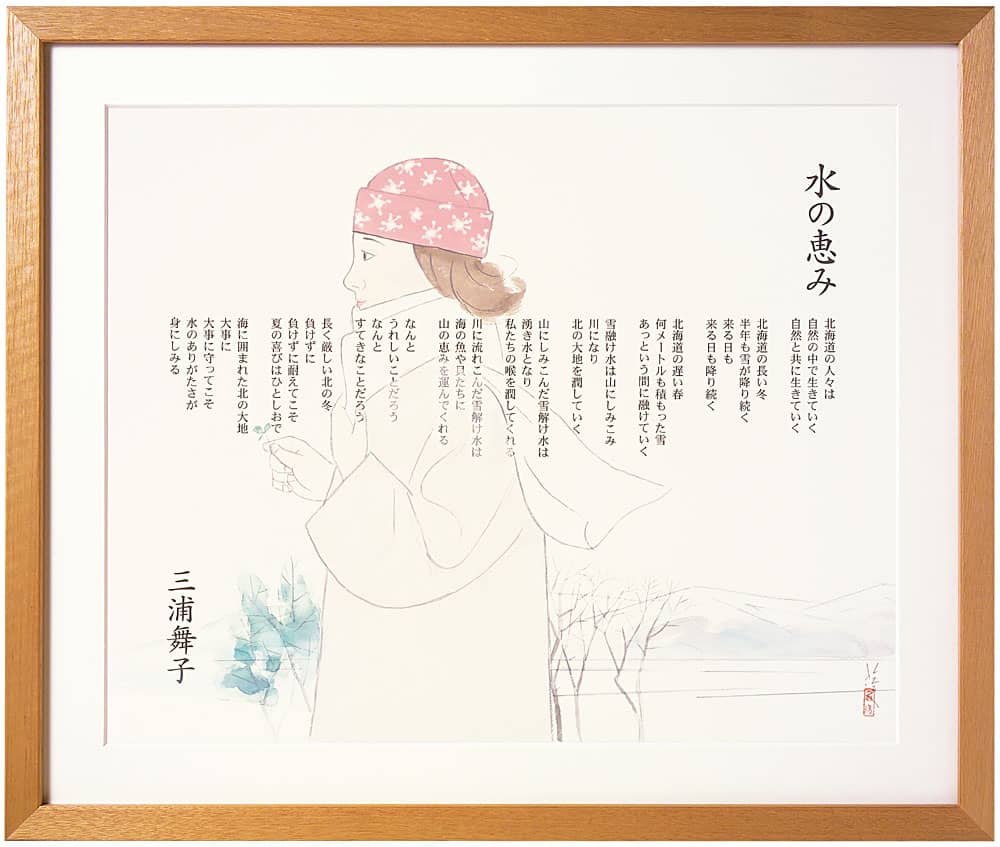 水の恵み
北海道の人々は
自然の中で生きていく
自然と共に生きていく
北海道の長い冬
半年も雪が降り続く
来る日も
来る日も降り続く
北海道の遅い春
何メートルも積もった雪
あっという間に融けていく
雪融け水は山にしみこみ
川になり
北の大地を潤していく
山にしみこんだ雪解け水は
湧き水となり
私たちの喉を潤してくれる
川に流れこんだ雪解け水は
海の魚や貝たちに
山の恵みを運んでくれる
なんと
うれしいことだろう
なんと
すてきなことだろう
長く厳しい北の冬
負けずに
負けずに耐えてこそ
夏の喜びはひとしおで
海に囲まれた北の大地
大事に
大事に守ってこそ
水のありがたさが
身にしみる
三浦舞子